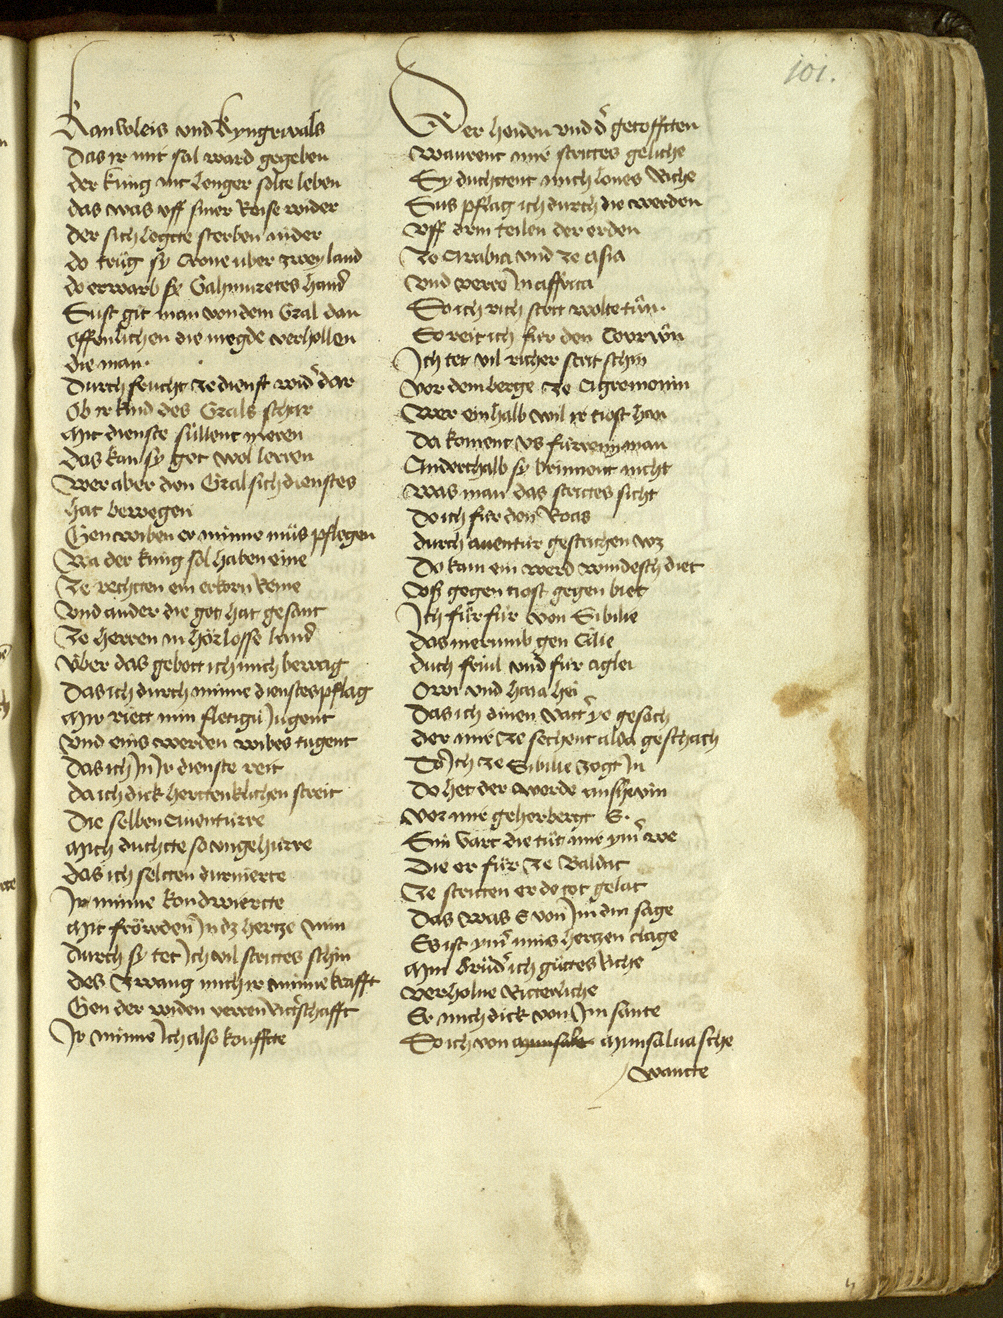 101.
Kanvoleis vnd kyngrivals
Das ir mit sal ward gegeben
der kúng nit lenger solte leben
das was vff siner Reise wider
der sich legtte sterben nider
do trůg sy Crone uber zwey land
do erwarb sy Gahmuretes hand
Sust git man von dem Gral dan
offenlichen die megde verhollen
die man.
Durch frucht ze dienst wider dar
Ob ir kind des Grals schar
Mit dienste súllent meren
das kan sy got wol lerren
Wer aber den Gral sich dienstes
hat bewegen
Gen wiben er minne můs pflegen
Wa der kúng sol haben eine
Ze rechtten ein erkorn Reine
vnd ander die got hat gesant
Ze herren in hörlosse land
Vber das gebott ich mich bewag
Das ich durch minne dienstes pflag
Mir riett min fletigú Jugent
vnd eins werden wibes tugent
Das ich Jn Jr dienste reit
da ich dick herttenklichen streit
Die selben Auentúrre
Mich duchtte so vngehúrre
das ich seltten turnierte
Jr minne kondwiertte
Mit fröwden Jn dz hertze min
durch sy tet Jch vil strittes schin
des Zwang mich ir minne krafft
Gen der wilden verren Ritterschafft
Jr minne Jch also koufftte
Der heiden vnd der getofften
Warent mir strittes geliche
Sy duchtent mich lones Riche
Sus pflag ich durch die werden
vff drin teilen der erden
Ze Arabia vnd ze asia
vnd verre Jn affrica
So ich rich stritt wolte tůn.
So reit ich fúr den Gorwůn
Jch tet vil richer strit schin
Vor dem berge ze Agremonin
Wer einhalb wil ir tiost han
Da koment vs fúrrein man
Anderthalb sy brinnent nicht
was man das strittes sicht
Do ich fúr den Roas
durch auentúr gestrichen wz
Do kam ein werd windesch diet
Vss gegen tiost gegen biet
Jch fůr fúr von Sibilie
Das mer umb gen Cilie
duch friul vnd fúr aglei
Owi vnd hai a hei
Das ich dinen vatter ye gesach
der mir ze sechent alda geschach
Do Jch ze Sibilie zogt Jn
Do het der werde anshevin
Vor mir geherbergt E.
Sin vart die tůt mir ymer we
Die er fůr ze Baldac
Ze stritten er do tot gelac
Das was E von Jm din sage
Es ist ymer mins hertzen clage
Min brůder ich gůttes Riche
verholne Ritterliche
Er mich dick von Jm sante
So ich von Munsaluasche
wantte